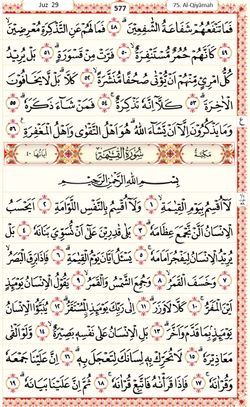 Juz 29 577 75. Al-Qiyāmah
فَمَا تَنفَعُهُمْ شَفَاعَةُ الشَّافِعِينَ ﴿٤٨﴾ فَمَا لَهُمْ عَنِ التَّذْكِرَةِ مُعْرِضِينَ
﴿٤٩﴾ كَأَنَّهُمْ حُمُرٌ مُّسْتَنفِرَةٌ ﴿٥٠﴾ فَرَّتْ مِن قَسْوَرَةٍ ﴿٥١﴾ بَلْ يُرِيدُ
كُلُّ امْرِئٍ مِّنْهُمْ أَن يُؤْتَىٰ صُحُفًا مُّنَشَّرَةً ﴿٥٢﴾ كَلَّا بَل لَّا يَخَافُونَ
الْآخِرَةَ ﴿٥٣﴾ كَلَّا إِنَّهُ تَذْكِرَةٌ ﴿٥٤﴾ فَمَن شَاءَ ذَكَرَهُ ﴿٥٥﴾
وَمَا يَذْكُرُونَ إِلَّا أَن يَشَاءَ اللَّهُ هُوَ أَهْلُ التَّقْوَىٰ وَأَهْلُ الْمَغْفِرَةِ ﴿٥٦﴾
مَكِّيَّة سُورَةُ الْقِيَامَةِ آيَاتُهَا ٤٠
بِسْمِ اللَّهِ الرَّحْمَٰنِ الرَّحِيمِ
لَا أُقْسِمُ بِيَوْمِ الْقِيَامَةِ ﴿١﴾ وَلَا أُقْسِمُ بِالنَّفْسِ اللَّوَّامَةِ ﴿٢﴾ أَيَحْسَبُ
الْإِنسَانُ أَلَّن نَّجْمَعَ عِظَامَهُ ﴿٣﴾ بَلَىٰ قَادِرِينَ عَلَىٰ أَن نُّسَوِّيَ بَنَانَهُ ﴿٤﴾ بَلْ
يُرِيدُ الْإِنسَانُ لِيَفْجُرَ أَمَامَهُ ﴿٥﴾ يَسْأَلُ أَيَّانَ يَوْمُ الْقِيَامَةِ ﴿٦﴾ فَإِذَا بَرِقَ الْبَصَرُ
﴿٧﴾ وَخَسَفَ الْقَمَرُ ﴿٨﴾ وَجُمِعَ الشَّمْسُ وَالْقَمَرُ ﴿٩﴾ يَقُولُ الْإِنسَانُ يَوْمَئِذٍ
أَيْنَ الْمَفَرُّ ﴿١٠﴾ كَلَّا لَا وَزَرَ ﴿١١﴾ إِلَىٰ رَبِّكَ يَوْمَئِذٍ الْمُسْتَقَرُّ ﴿١٢﴾ يُنَبَّأُ الْإِنسَانُ
يَوْمَئِذٍ بِمَا قَدَّمَ وَأَخَّرَ ﴿١٣﴾ بَلِ الْإِنسَانُ عَلَىٰ نَفْسِهِ بَصِيرَةٌ ﴿١٤﴾ وَلَوْ أَلْقَىٰ
مَعَاذِيرَهُ ﴿١٥﴾ لَا تُحَرِّكْ بِهِ لِسَانَكَ لِتَعْجَلَ بِهِ ﴿١٦﴾ إِنَّ عَلَيْنَا جَمْعَهُ
وَقُرْآنَهُ ﴿١٧﴾ فَإِذَا قَرَأْنَاهُ فَاتَّبِعْ قُرْآنَهُ ﴿١٨﴾ ثُمَّ إِنَّ عَلَيْنَا بَيَانَهُ ﴿١٩﴾